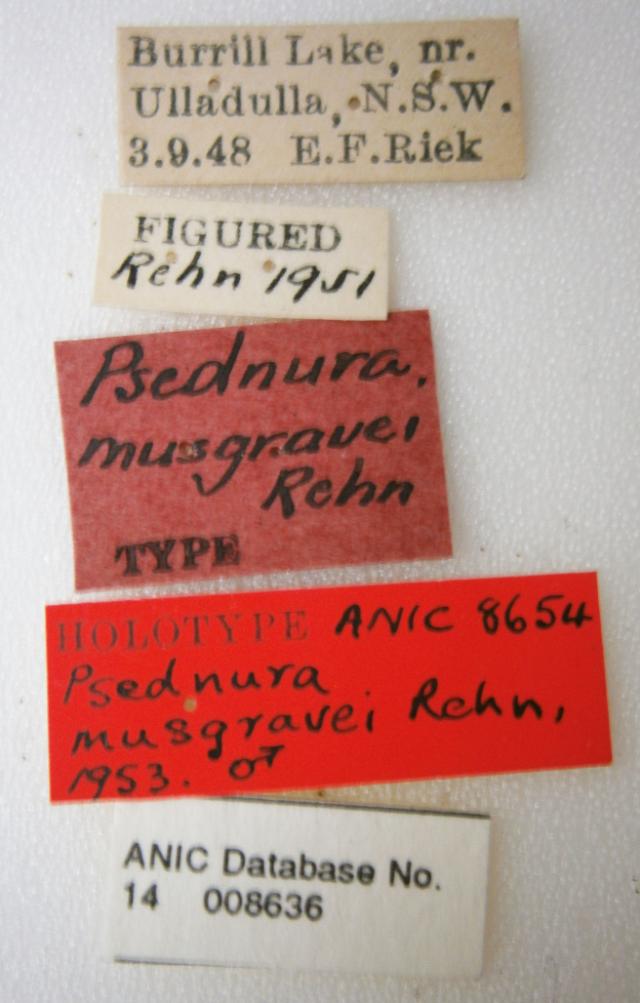 Burrill Lake, nr.
Ulladulla, N.S.W.
3.9.48 E.F.Riek
FIGURED
Rehn 1951
Psednura.
musgravei
Rehn
TYPE
HOLOTYPE ANIC 8654
Psednura
musgravei Rehn,
1953. ♂
ANIC Database No.
14 008636